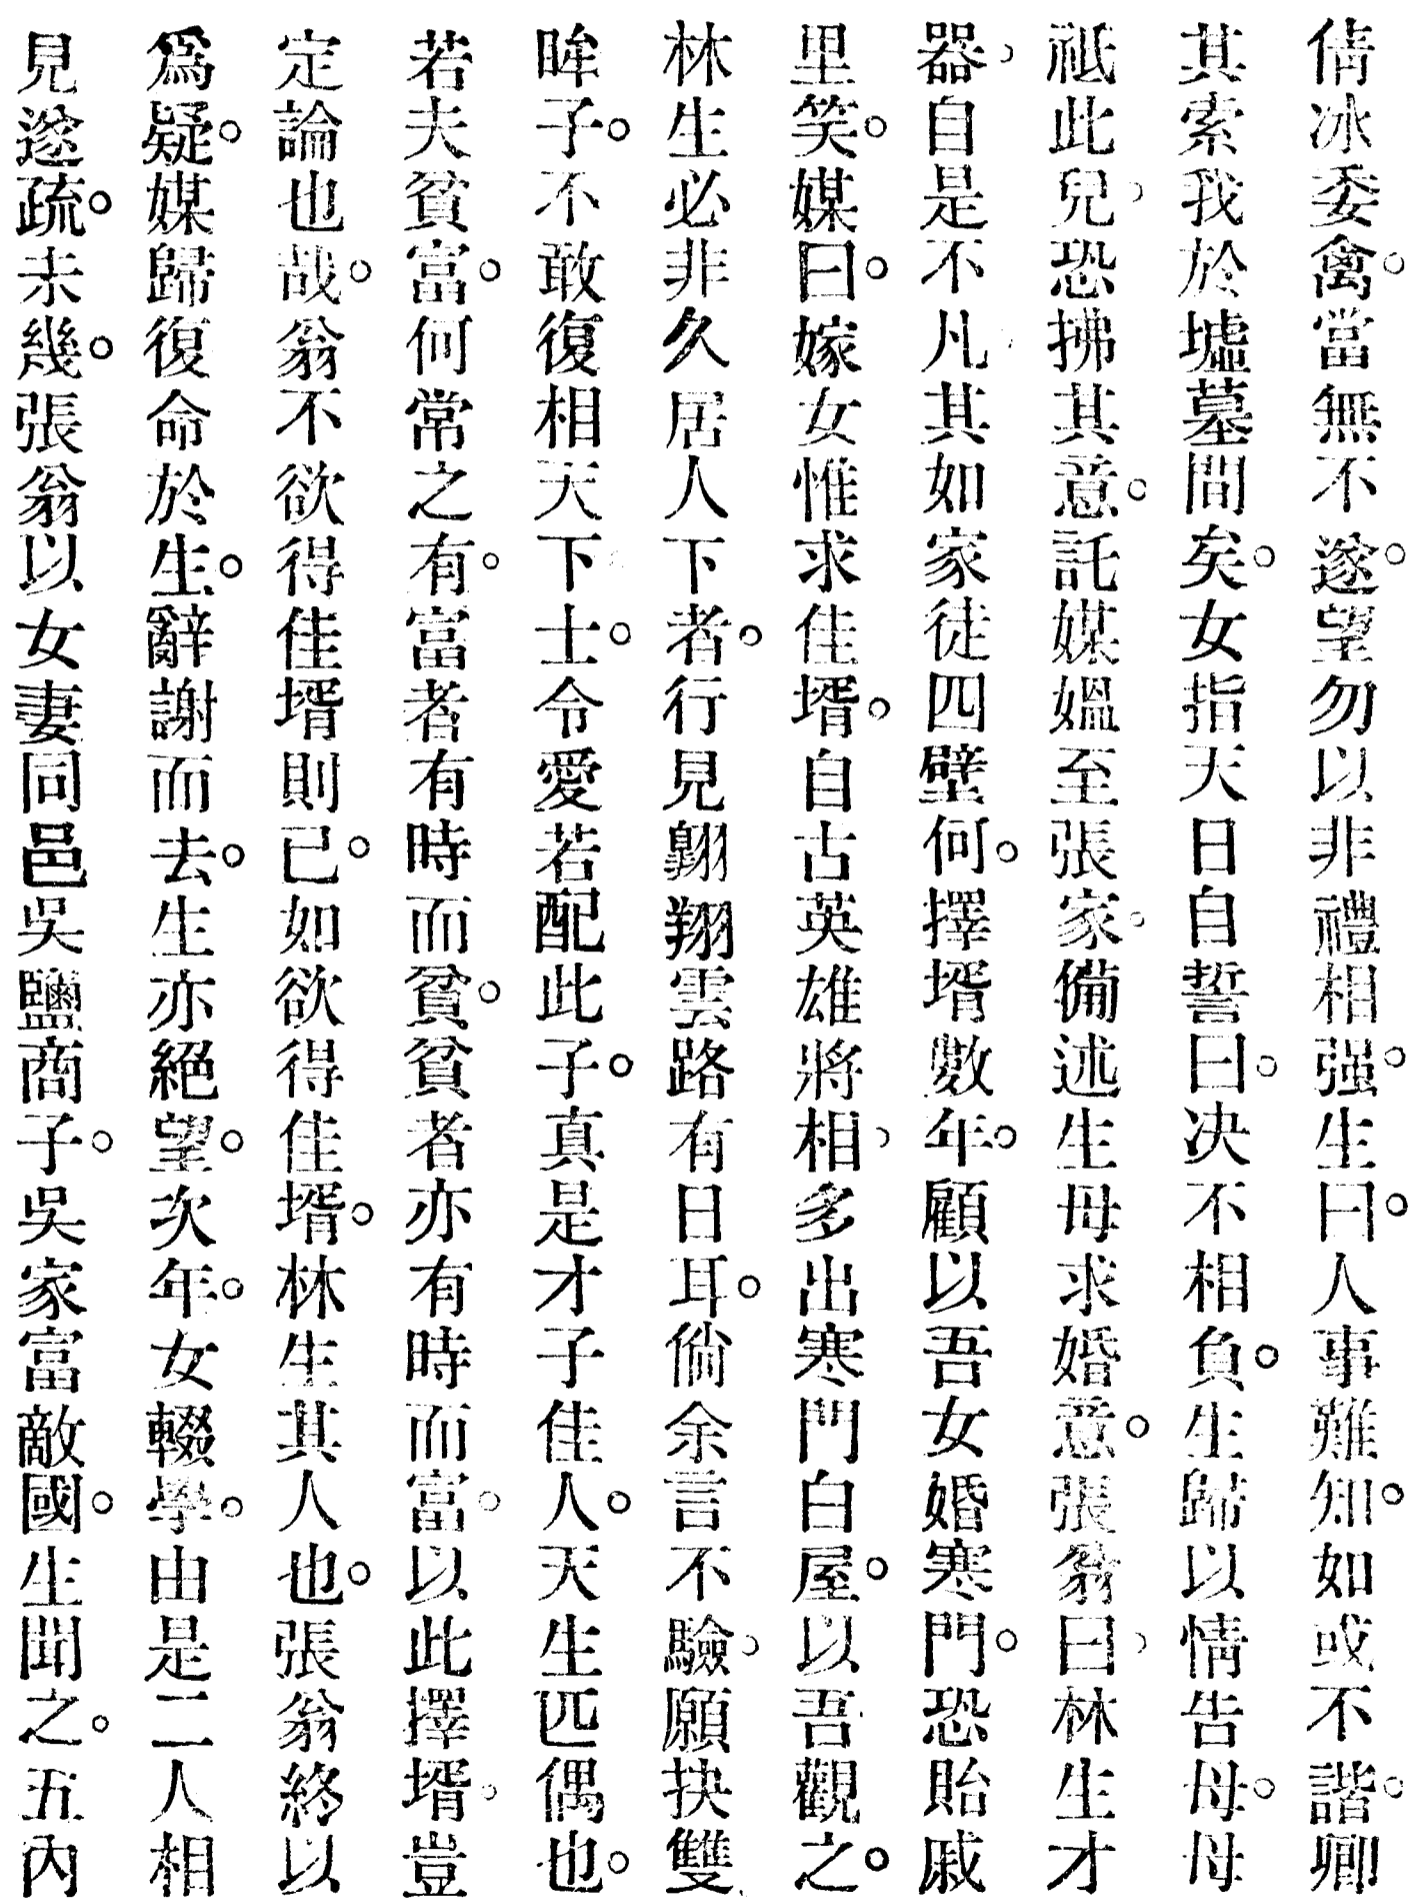 倩冰委禽。當無不遂。望勿以非禮相强。生曰。人事難知。如或不諧。卿
其索我於墟墓間矣。女指天日自誓曰。决不相負。生歸以情告母。母
祇此兒、恐拂其意。託媒媼至張家。備述生母求婚意。張翁曰、林生才
器、自是不凡、其如家徒四壁何。擇壻數年。顧以吾女婚寒門。恐貽戚
里笑。媒曰。嫁女惟求佳壻。自古英雄將相、多出寒門白屋。以吾觀之。
林生必非久居人下者。行見翺翔雲路有日耳。倘余言不驗、願抉雙
眸子。不敢復相天下士。令愛若配此子。真是才子佳人。天生匹偶也。
若夫貧富。何常之有。富者有時而貧。貧者亦有時而富。以此擇壻。豈
定論也哉。翁不欲得佳壻則已。如欲得佳壻。林生其人也。張翁終以
爲疑。媒歸復命於生。辭謝而去。生亦絕望。次年。女輟學。由是二人相
見遂疏。未幾。張翁以女妻同邑吳鹽商子。吳家富敵國。生聞之。五內